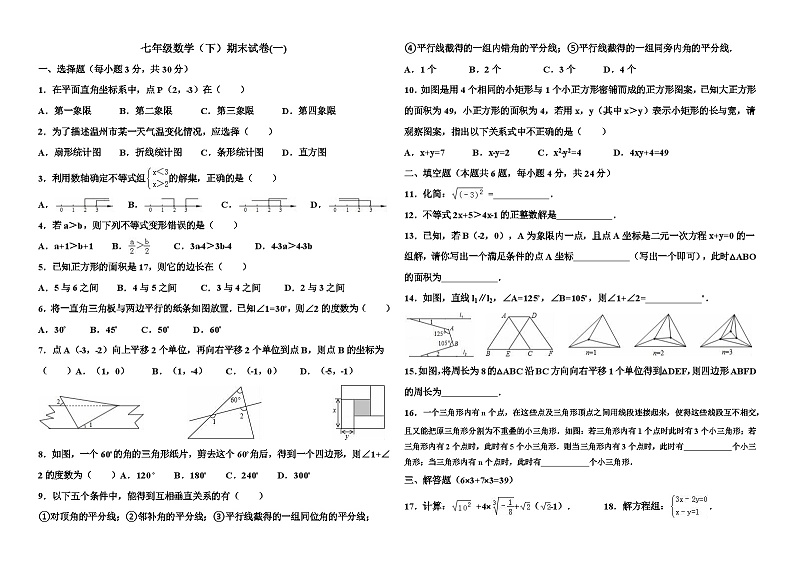 七年级数学（下）期末试卷(一)
一、选择题（每小题3分，共30分）
1．在平面直角坐标系中，点P（2，-3）在（　　）
A．第一象限　　B．第二象限　　C．第三象限　　D．第四象限
2．为了描述温州市某一天气温变化情况，应选择（　　）
A．扇形统计图　　B．折线统计图　　C．条形统计图　　D．直方图
3．利用数轴确定不等式组{x<3 x>2的解集，正确的是（　　）
A． 0 1 2 3　B． 0 1 2 3　C． 0 1 2 3　D． 0 1 2 3
4．若a＞b，则下列不等式变形错误的是（　　）
A．a+1＞b+1　B．a/2＞b/2　　C．3a-4＞3b-4　　D．4-3a＞4-3b
5．已知正方形的面积是17，则它的边长在（　　）
A．5与6之间　　B．4与5之间　　C．3与4之间　　D．2与3之间
6．将一直角三角板与两边平行的纸条如图放置．已知∠1=30°，则∠2的度数为（　　）
A．30°　　B．45°　　C．50°　　D．60°
7．点A（-3，-2）向上平移2个单位，再向右平移2个单位到点B，则点B的坐标为
（　　）A．（1，0）　　B．（1，-4）　　C．（-1，0）　　D．（-5，-1）
2 1 60° 1 2 x y
8．如图，一个60°的角的三角形纸片，剪去这个60°角后，得到一个四边形，则∠1+∠
2的度数为（　　）A．120°　　B．180°　　C．240°　　D．300°
9．以下五个条件中，能得到互相垂直关系的有（　　）
①对顶角的平分线；②邻补角的平分线；③平行线截得的一组同位角的平分线；
④平行线截得的一组内错角的平分线；⑤平行线截得的一组同旁内角的平分线．
A．1个　　B．2个　　C．3个　　D．4个
10．如图是用4个相同的小矩形与1个小正方形密铺而成的正方形图案，已知大正方形
的面积为49，小正方形的面积为4，若用x，y（其中x＞y）表示小矩形的长与宽，请
观察图案，指出以下关系式中不正确的是（　　）
A．x+y=7　　B．x-y=2　　C．x²-y²=4　　D．4xy+4=49
二、填空题（本题共6题，每小题4分，共24分）
11．化简：√(-3)² =__________．
12．不等式2x+5＞4x-1的正整数解是__________．
13．已知，若B（-2，0），A为象限内一点，且点A坐标是二元一次方程x+y=0的一
组解，请你写出一个满足条件的点A坐标__________（写出一个即可），此时△ABO
的面积为__________．
14．如图，直线l₁∥l₂，∠A=125°，∠B=105°，则∠1+∠2=__________°．
l₁ 1 A 125° 105° B 2 l₂ A D B E C F n=1 n=2 n=3
15．如图，将周长为8的△ABC沿BC方向向右平移1个单位得到△DEF，则四边形ABFD
的周长为__________．
16．一个三角形内有n个点，在这些点及三角形顶点之间用线段连接起来，使得这些线段互不相交，
且又能把原三角形分割为不重叠的小三角形．如图：若三角形内有1个点时此时有3个小三角形；若
三角形内有2个点时，此时有5个小三角形．则当三角形内有3个点时，此时有__________个小三
角形；当三角形内有n个点时，此时有__________个小三角形．
三、解答题（6×3+7×3=39）
17．计算：√10² +4×∛-1/8+√2（√2-1）．　　18．解方程组：{3x-2y=0 x-y=1．